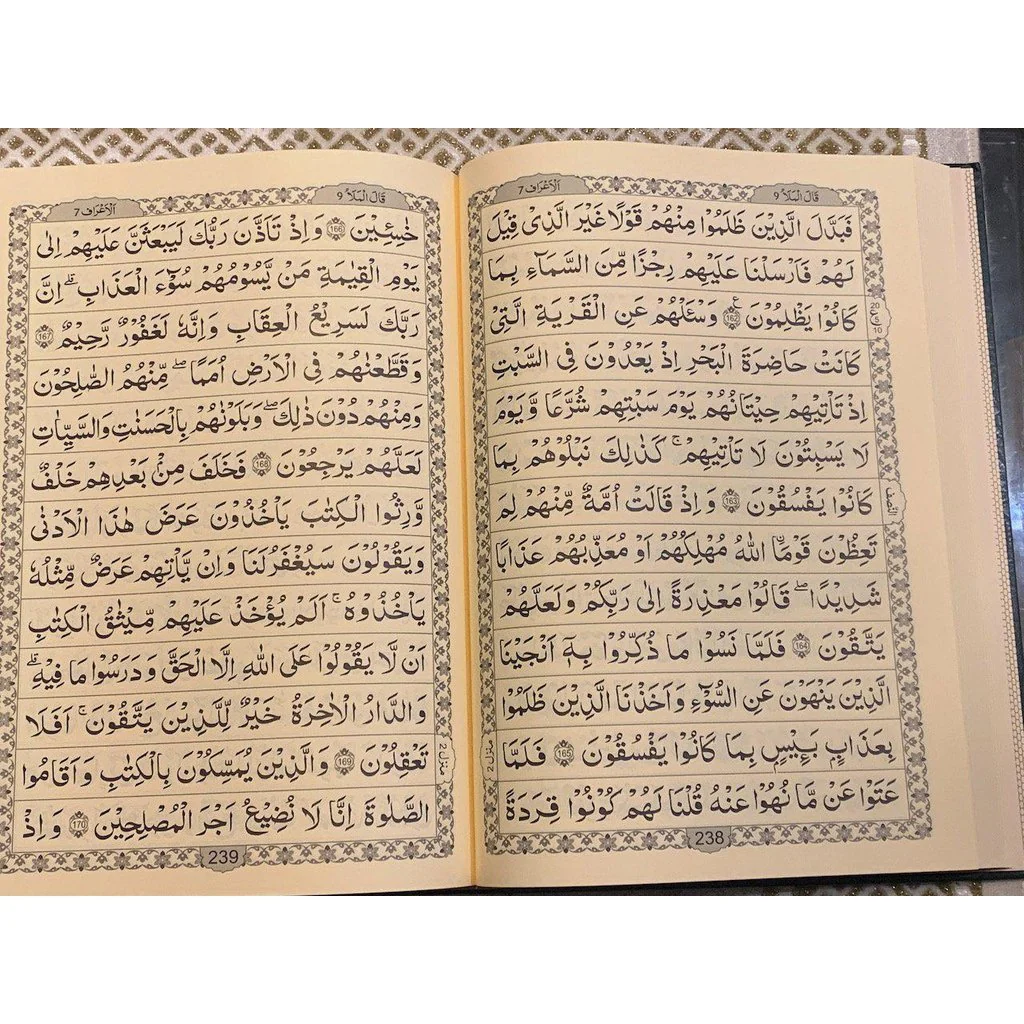 قَالَ الْمَلَاُ 9
اَلْاَعْرَاف 7
فَبَدَّلَ الَّذِيْنَ ظَلَمُوْا مِنْهُمْ قَوْلًا غَيْرَ الَّذِىْ قِيْلَ
لَهُمْ فَاَرْسَلْنَا عَلَيْهِمْ رِجْزًا مِّنَ السَّمَآءِ بِمَا
كَانُوْا يَظْلِمُوْنَ 162 ع وَسْئَلْهُمْ عَنِ الْقَرْيَةِ الَّتِىْ
20
ع 5
10
كَانَتْ حَاضِرَةَ الْبَحْرِ اِذْ يَعْدُوْنَ فِى السَّبْتِ
اِذْ تَاْتِيْهِمْ حِيْتَانُهُمْ يَوْمَ سَبْتِهِمْ شُرَّعًا وَّيَوْمَ
لَا يَسْبِتُوْنَ لَا تَاْتِيْهِمْ ۚ كَذٰلِكَ نَبْلُوْهُمْ بِمَا
كَانُوْا يَفْسُقُوْنَ 163 وَاِذْ قَالَتْ اُمَّةٌ مِّنْهُمْ لِمَ
تَعِظُوْنَ قَوْمَا ۙ اللّٰهُ مُهْلِكُهُمْ اَوْ مُعَذِّبُهُمْ عَذَابًا
شَدِيْدًا ؕ قَالُوْا مَعْذِرَةً اِلٰى رَبِّكُمْ وَلَعَلَّهُمْ
يَتَّقُوْنَ 164 فَلَمَّا نَسُوْا مَا ذُكِّرُوْا بِهٖۤ اَنْجَيْنَا
الَّذِيْنَ يَنْهَوْنَ عَنِ السُّوْٓءِ وَاَخَذْنَا الَّذِيْنَ ظَلَمُوْا
بِعَذَابٍۭ بَـئِيْسٍۭ بِمَا كَانُوْا يَفْسُقُوْنَ 165 فَلَمَّا
عَتَوْا عَنْ مَّا نُهُوْا عَنْهُ قُلْنَا لَهُمْ كُوْنُوْا قِرَدَةً
منزل 2
238
قَالَ الْمَلَاُ 9
اَلْاَعْرَاف 7
خٰسِئِيْنَ 166 وَاِذْ تَاَذَّنَ رَبُّكَ لَيَبْعَثَنَّ عَلَيْهِمْ اِلٰى
يَوْمِ الْقِيٰمَةِ مَنْ يَّسُوْمُهُمْ سُوْٓءَ الْعَذَابِ ؕ اِنَّ
رَبَّكَ لَسَرِيْعُ الْعِقَابِ وَاِنَّهٗ لَغَفُوْرٌ رَّحِيْمٌ 167
وَقَطَّعْنٰهُمْ فِى الْاَرْضِ اُمَمًا ۚ مِنْهُمُ الصّٰلِحُوْنَ
وَمِنْهُمْ دُوْنَ ذٰلِكَ وَبَلَوْنٰهُمْ بِالْحَسَنٰتِ وَالسَّيِّاٰتِ
لَعَلَّهُمْ يَرْجِعُوْنَ 168 فَخَلَفَ مِنْۢ بَعْدِهِمْ خَلْفٌ
وَّرِثُوا الْكِتٰبَ يَاْخُذُوْنَ عَرَضَ هٰذَا الْاَدْنٰى
وَيَقُوْلُوْنَ سَيُغْفَرُ لَنَا وَاِنْ يَّاْتِهِمْ عَرَضٌ مِّثْلُهٗ
يَاْخُذُوْهُ ؕ اَلَمْ يُؤْخَذْ عَلَيْهِمْ مِّيْثٰقُ الْكِتٰبِ
اَنْ لَّا يَقُوْلُوْا عَلَى اللّٰهِ اِلَّا الْحَقَّ وَدَرَسُوْا مَا فِيْهِ ؕ
وَالدَّارُ الْاٰخِرَةُ خَيْرٌ لِّلَّذِيْنَ يَتَّقُوْنَ ؕ اَفَلَا
تَعْقِلُوْنَ 169 وَالَّذِيْنَ يُمَسِّكُوْنَ بِالْكِتٰبِ وَاَقَامُوا
الصَّلٰوةَ اِنَّا لَا نُضِيْعُ اَجْرَ الْمُصْلِحِيْنَ 170 وَاِذْ
منزل 2
239